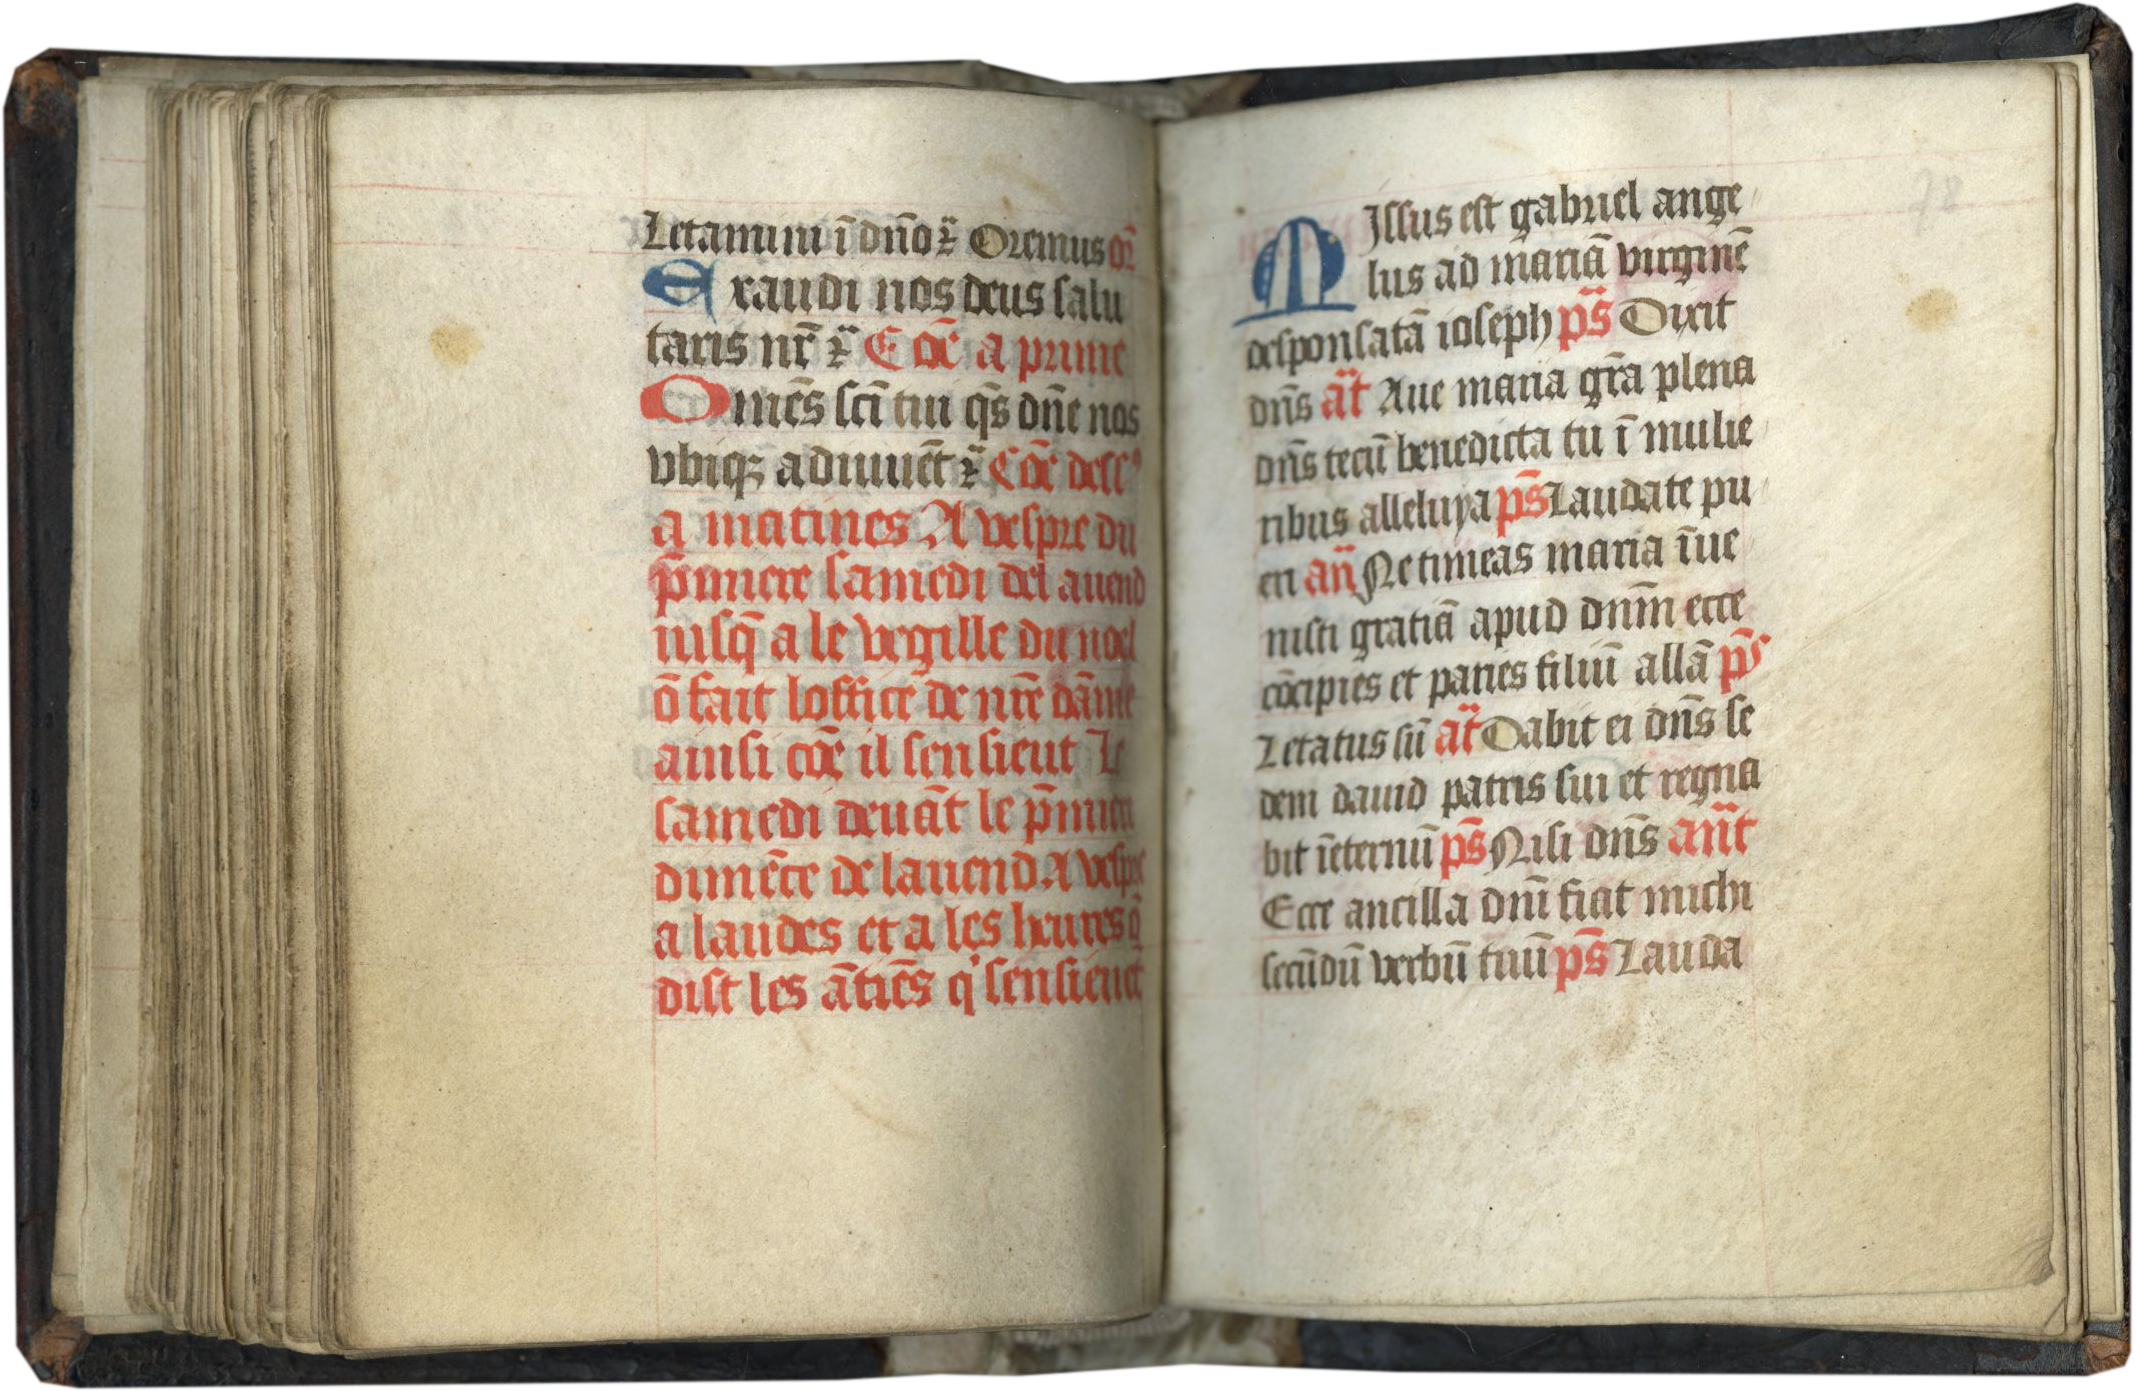 Letamini ī dño ꝛ̃ Oremus or̃
Exaudi nos deus salu
taris nr̃ ꝛ̃ Cōē a prime
Omēs sc̄i tui q̄s dn̄e nos
vbiqꝫ adiuuēt ꝛ̃ Cōē dess⁹
a matines A vespre du
p̄miere samedi del auend
iusq̄ a le vegille du noel
ō fait loffice de nr̄e dāme
ainsi cōē il sensieut Le
samedi deuāt le p̄mier
dimēce de lauend A vespre
a laudes et a les heures q̄
dist les ātiēs q' sensieuēt
MIssus est gabriel ange
lus ad mariā virginē
desponsatā ioseph ps̄ Dixit
dn̄s at̄ Aue maria gr̄a plena
dn̄s tecū benedicta tu ī mulie
ribus alleluya ps̄ Laudate pu
eri an̄ Ne timeas maria īue
nisti gratiā apud dn̄m ecce
cōcipies et paries filiū allā ps̄
Letatus sū at̄ Dabit ei dn̄s se
dem dauid patris sui et regna
bit īeternū ps̄ Nisi dn̄s an̄t
Ecce ancilla dn̄i fiat michi
secūdū verbū tuū ps̄ Lauda
78